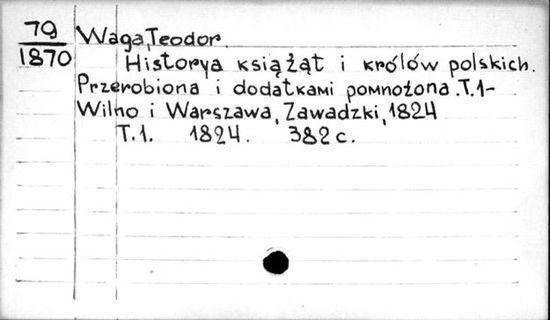 79
1870
Waga, Teodor.
Historya książąt i królów polskich.
Przerobiona i dodatkami pomnożona. T.1-
Wilno i Warszawa, Zawadzki, 1824
T.1. 1824. 382 c.